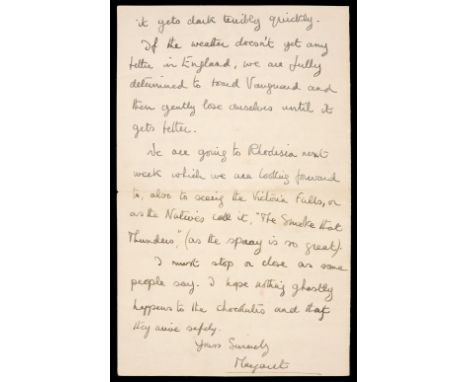 it gets dark terribly quickly.
If the weather doesn't get any
better in England, we are fully
determined to board Vanguard and
then gently lose ourselves until it
gets better.
We are going to Rhodesia next
week which we are looking forward
to, also to seeing the Victoria Falls, or
as the Natives call it, "The Smoke that
Thunders," (as the spray is so great).
I must stop or close as some
people say. I hope nothing ghastly
happens to the chocholates and that
they arrive safely.
Yours Sincerely
Margaret